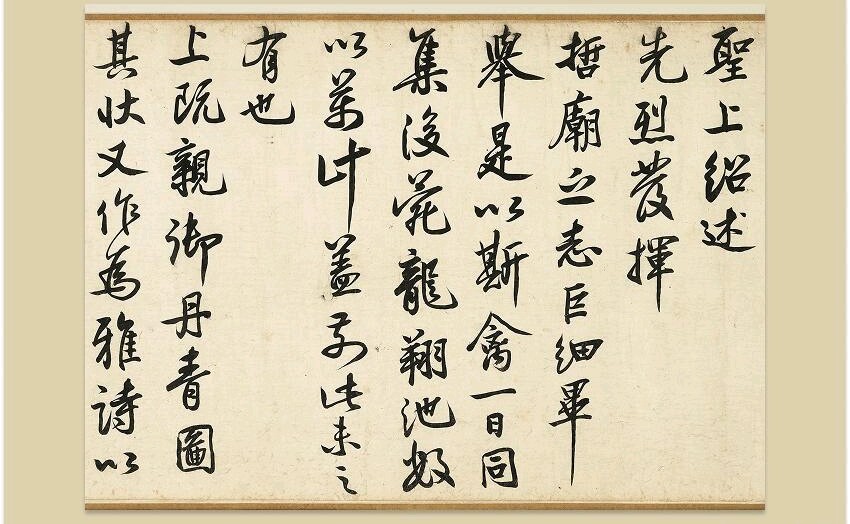 聖上紹述
先烈發揮
哲廟之志巨細畢
舉是以斯禽一日同
集後苑龍翔池數
以萬計蓋前此未之
有也
上既親御丹青圖
其狀又作為雅詩以